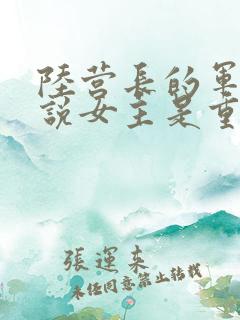 陸营長的軍
說女主是重
張運來
未任同意禁止转載